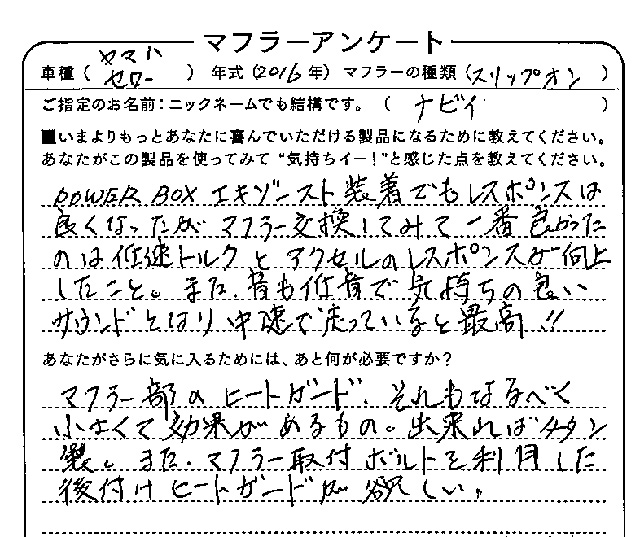 マフラーアンケート
車種（ ヤマハ セロー ） 年式（2016年） マフラーの種類（スリップオン）
ご指定のお名前：ニックネームでも結構です。（ ナビィ ）
■いまよりもっとあなたに喜んでいただける製品になるために教えてください。
あなたがこの製品を使ってみて“気持ちイー！”と感じた点を教えてください。
POWER BOX エキゾースト装着でもレスポンスは
良くなったが マフラー交換してみて一番良かった
のは低速トルクとアクセルのレスポンスが向上
したこと。また、音も低音で気持ちの良い
サウンドとなり中速で走っていると最高!!
あなたがさらに気に入るためには、あと何が必要ですか？
マフラー部のヒートガード、それもなるべく
小さくて効果があるもの。出来ればチタン
製。また、マフラー取付ボルトを利用した
後付けヒートガードが欲しい。